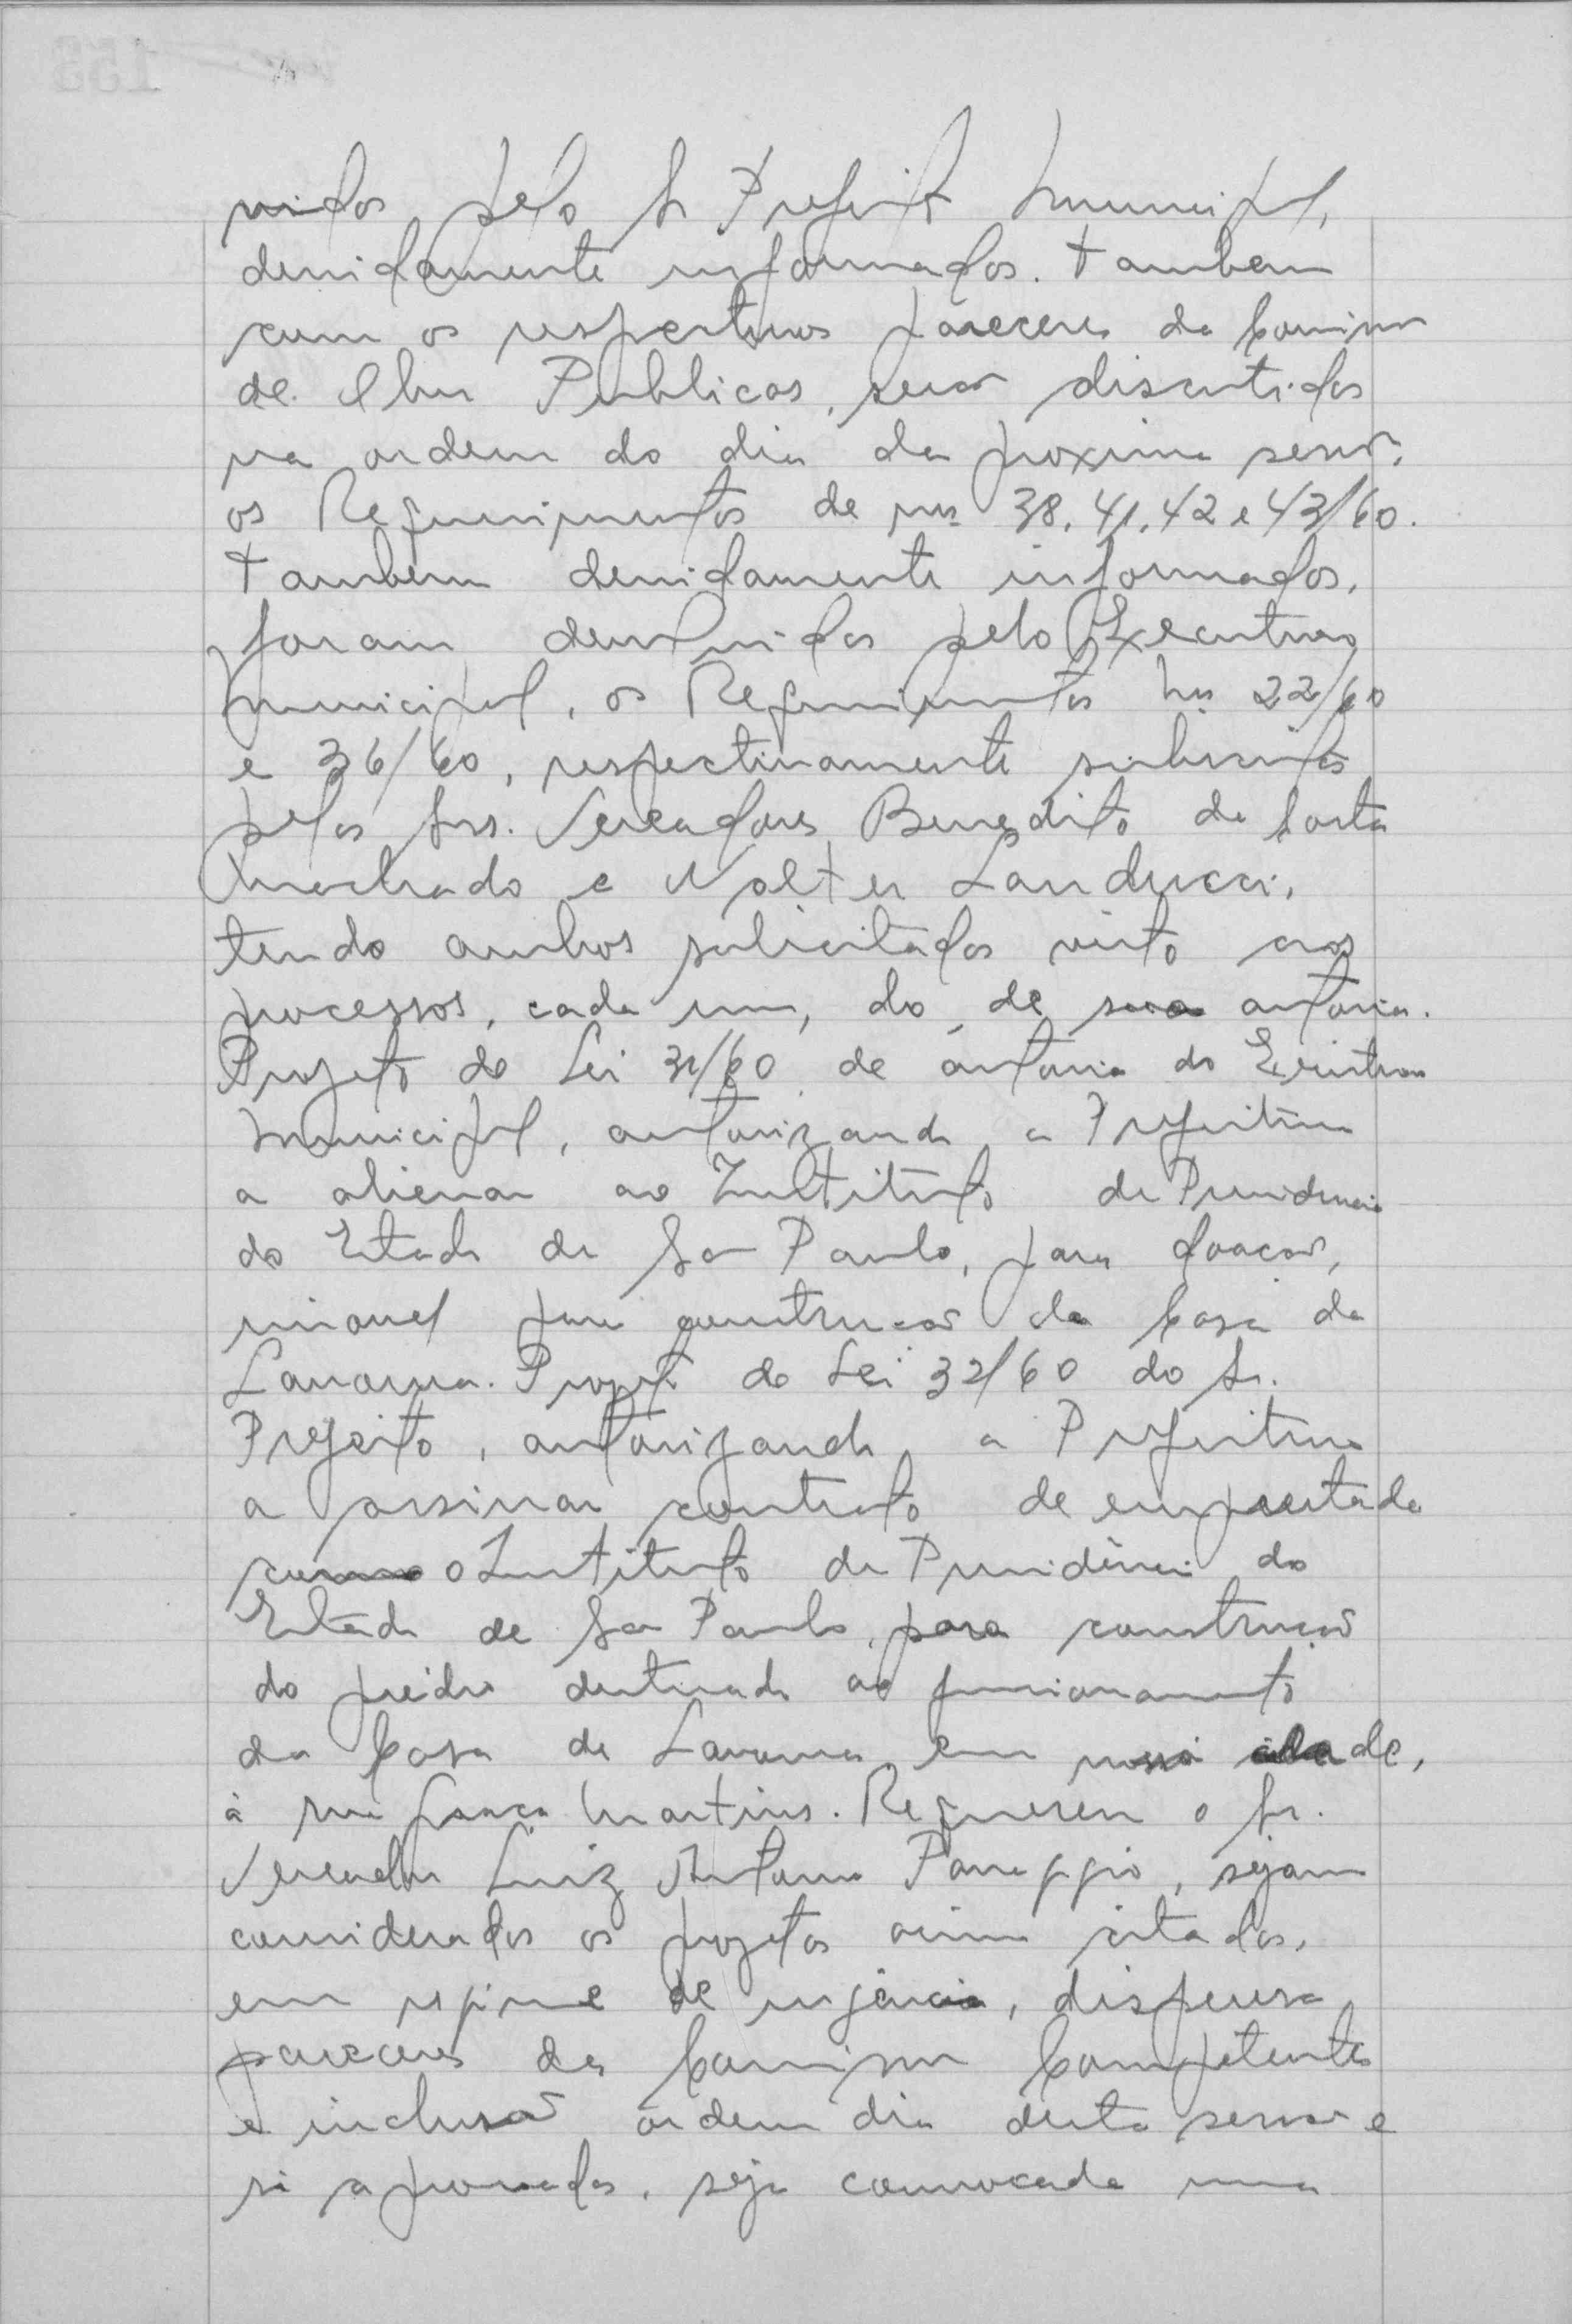 vidos pelo Sr Prefeito Municipal,
devidamente informados. Tambem
com os respectivos pareceres da Comissão
de Obras Publicas, serão discutidos
na ordem do dia da proxima sessão,
os Requerimentos de nºs 38, 41, 42 e 43/60.
Tambem devidamente informados,
foram devolvidos pelo Executivo
Municipal, os Requerimentos nºs 22/60
e 36/60, respectivamente subscritos
pelos Srs. Vereadores Benedito da Costa
Machado e Walter Landucci,
tendo ambos solicitados visto aos
processos, cada um, do de sua autoria.
Projeto de Lei 31/60 de autoria do Executivo
Municipal, autorizando a Prefeitura
a alienar ao Instituto de Previdencia
do Estado de São Paulo, para doação,
imovel para construção da Casa da
Lavoura. Projeto de Lei 32/60 do Sr.
Prefeito, autorizando a Prefeitura
a assinar contrato de empreitada
com o Instituto de Previdência do
Estado de São Paulo, para construção
do prédio destinado ao funcionamento
da Casa da Lavoura em nossa cidade,
à rua Martins. Requereu o Sr.
Vereador Luiz Antonio Panuggio, sejam
considerados os projetos acima citados,
em regime de urgência, dispensa
pareceres da Comissão Competente
e inclusão ordem dia desta sessão e
si aprovados, seja convocada uma